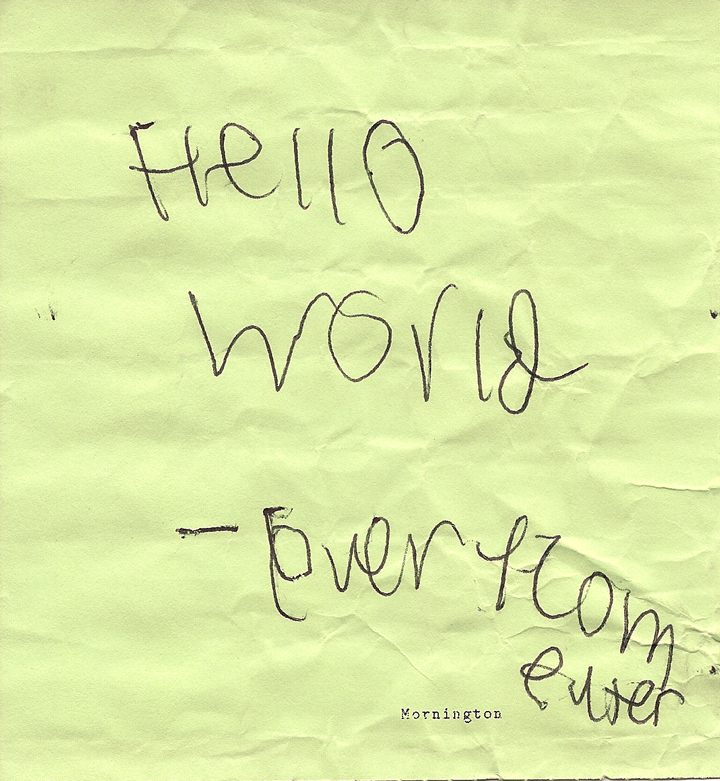 Hello
World
- Ever from
ever
Mornington